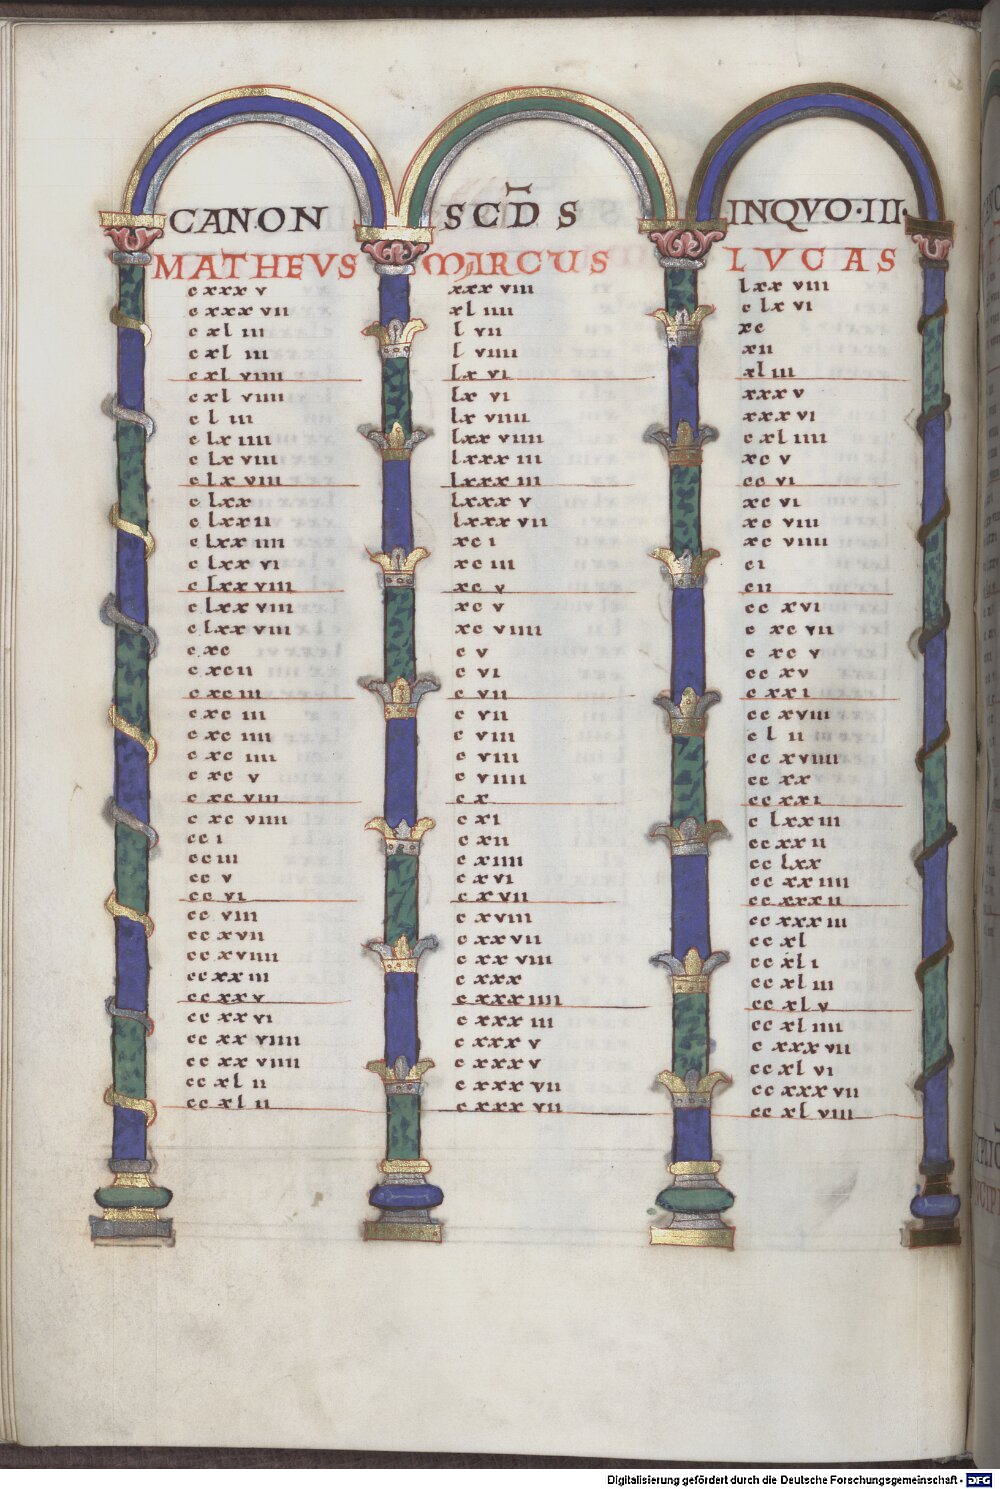 CANON SCD̄S INQVO·III·
MATHEVS MARCUS LVCAS
cxxxv xxxviii lxxviii
cxxxvii xliiii clxvi
cxliii lvii xc
cxliii lviiii xii
cxlviiii lxvi xliii
cxlviiii lxvi xxxv
cliii lxviiii xxxvi
clxiiii lxxviiii cxliiii
clxviii lxxxiii xcv
clxviii lxxxiii ccvi
clxx lxxxv xcvi
clxxii lxxxvii xcviii
clxxiiii xci xcviiii
clxxvi xciii ci
clxxviii xcv cii
clxxviii xcv ccxvi
clxxviii xcviiii cxcvii
cxc cv cxcv
cxcii cvi ccxv
cxciii cvii cxxi
cxciii cvii ccxviii
cxciiii cviii clii
cxciiii cviii ccxviiii
cxcv cviiii ccxx
cxcviii cx ccxxi
cxcviiii cxi clxxiii
cci cxii ccxxii
cciii cxiiii cclxx
ccv cxvi ccxxiiii
ccvi cxvii ccxxxii
ccviii cxviii ccxxxiii
ccxvii cxxvii ccxl
ccxviiii cxxviii ccxli
ccxxiii cxxx ccxliii
ccxxv cxxxiiii ccxlv
ccxxvi cxxxiii ccxliiii
ccxxviiii cxxxv cxxxvii
ccxxviiii cxxxv ccxlvi
ccxlii cxxxvii ccxxxvii
ccxlii cxxxvii ccxlviii
Digitalisierung gefördert durch die Deutsche Forschungsgemeinschaft - DFG